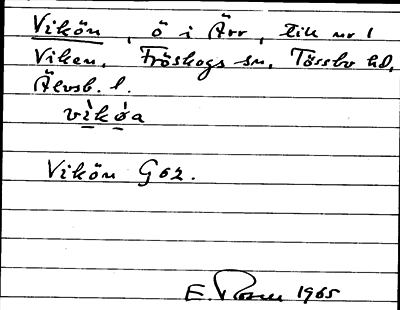 Vikön, ö i Ärr, till nr 1
Viken, Fröskogs sn, Tössbo hd,
Älvsb. l.
vìkø̀a
Vikön G62.
E. Rosen 1965